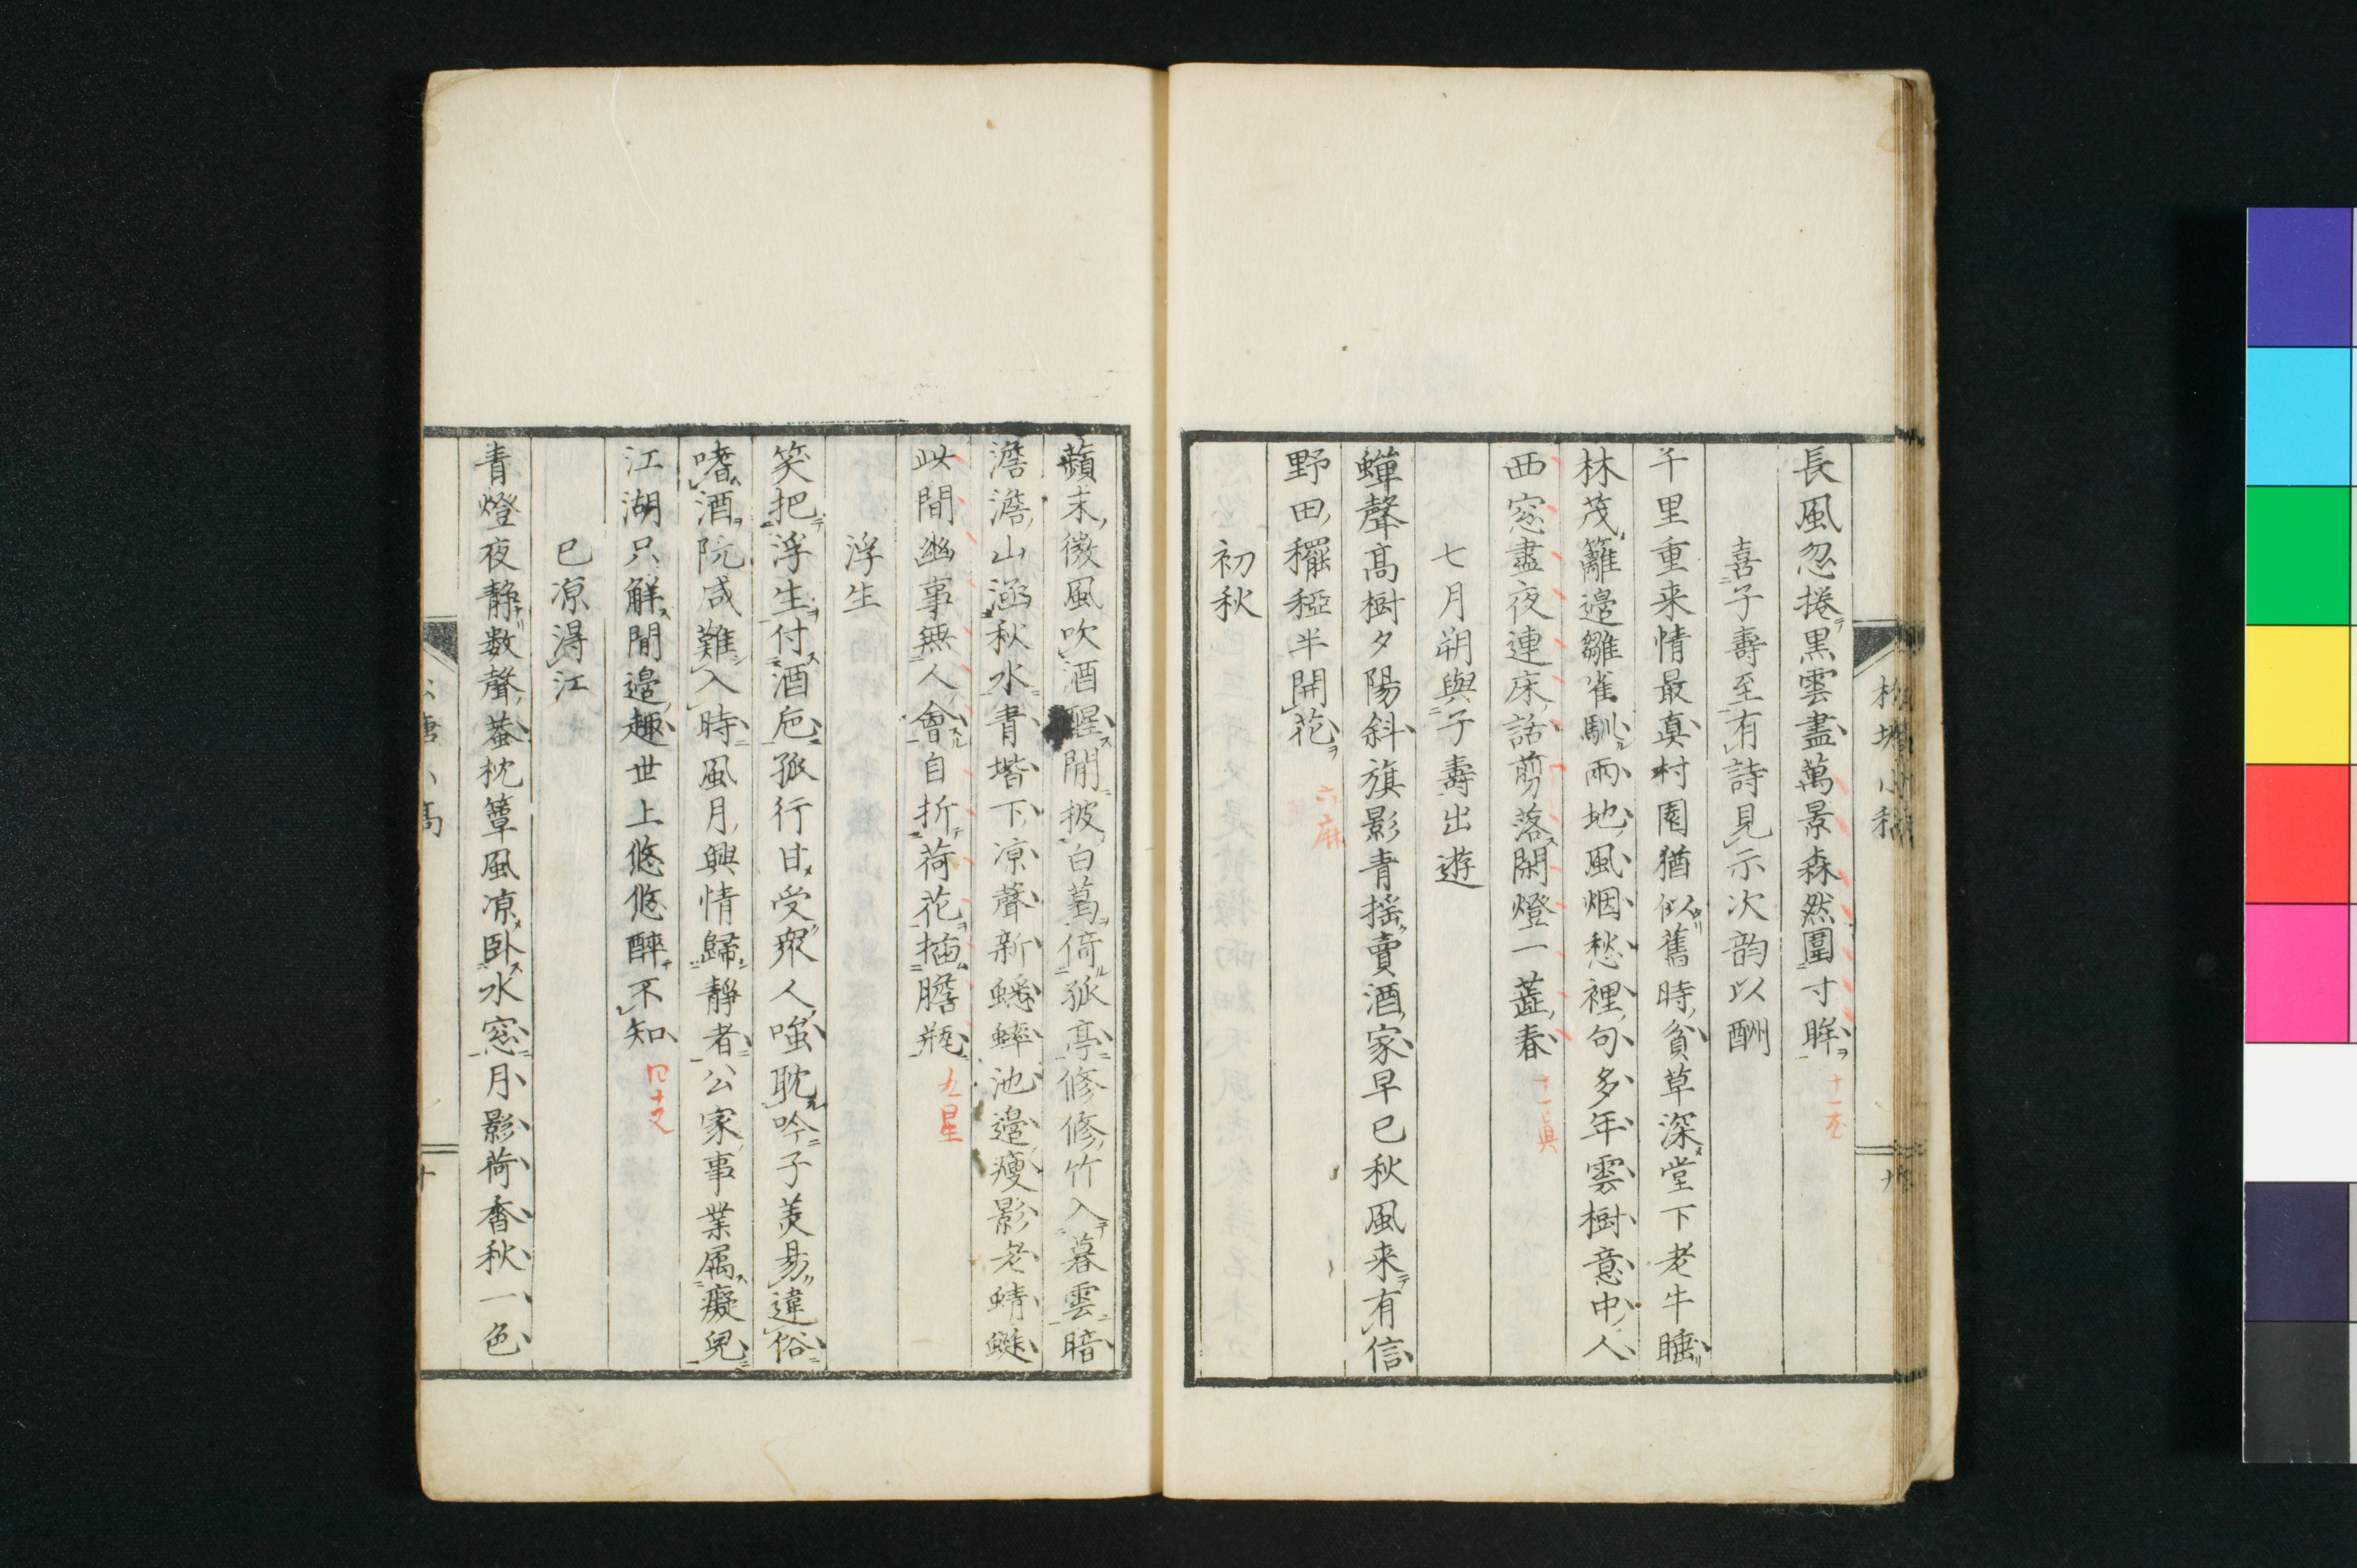 長風忽捲黒雲盡萬景森然圍寸眸
十一尤
喜子壽至有詩見示次韵以酬
千里重来情最真村園猶似舊時貧草深堂下老牛睡
林茂籬邉雛雀馴両地風烟愁裡句多年雲樹意中人
西窓盡夜連床話剪落閑燈一盞春
十一真
七月朔與子壽出遊
蟬聲髙樹夕陽斜旗影青揺賣酒家早已秋風来有信
野田䆉稏半開花
六麻
初秋
蘋末微風吹酒醒閒披白葛倚孤亭修修竹入暮雲暗
澹澹山涵秋水青堦下凉聲新蟋蟀池邉痩影老蜻蜓
此間幽事無人會自折荷花插膽瓶
九星
浮生
笑把浮生付酒巵孤行甘受衆人嗤耽吟子羙易違俗
嗜酒阮咸難入時風月興情歸靜者公家事業属癡兒
江湖只解閒邉趣世上悠悠醉不知
四支
已凉得江
青燈夜静数聲蛬枕簟風凉卧水窓月影荷香秋一色